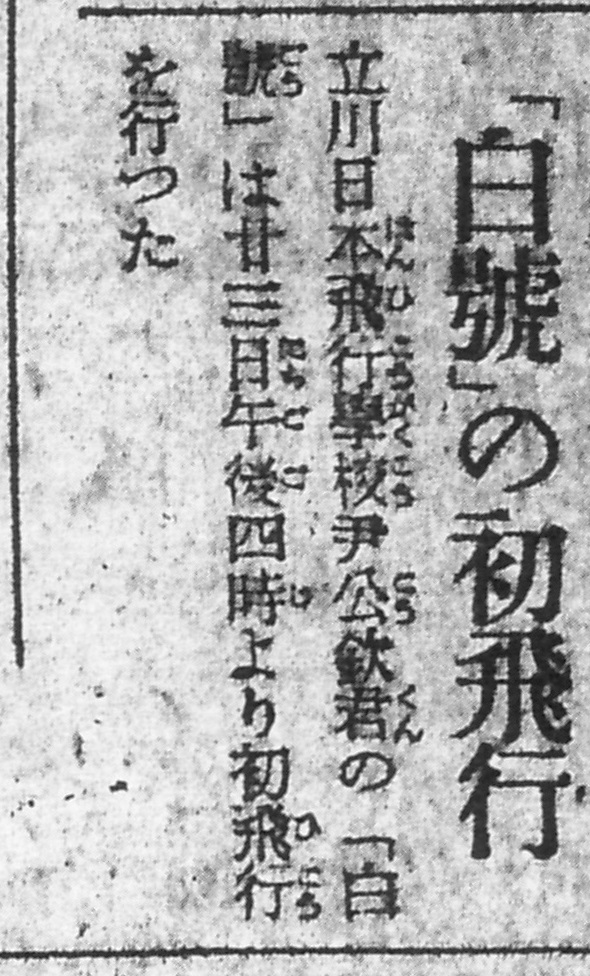 「白號」の初飛行
立川日本飛行學校尹公欽君の「白
號」は廿三日午後四時より初飛行
を行つた